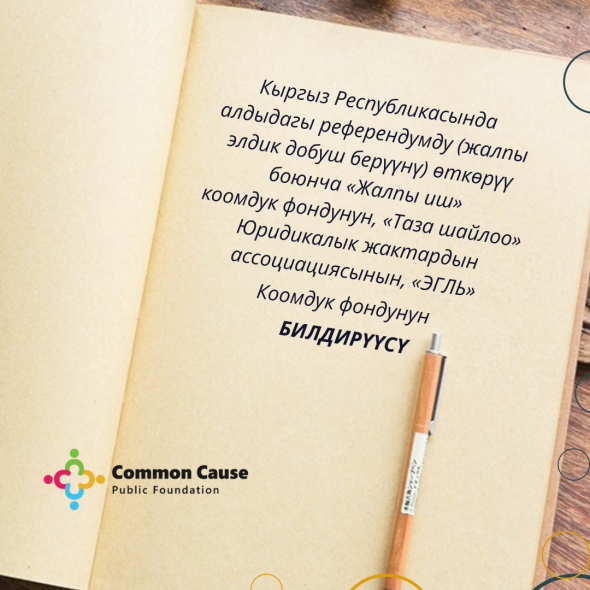 Кыргыз Республикасында
алдыдагы референдумду (жалпы
элдик добуш берүүнү) өткөрүү
боюнча «Жалпы иш»
коомдук фондунун, «Таза шайлоо»
Юридикалык жактардын
ассоциациясынын, «ЭГЛЬ»
Коомдук фондунун
БИЛДИРҮҮСҮ
Common Cause
Public Foundation